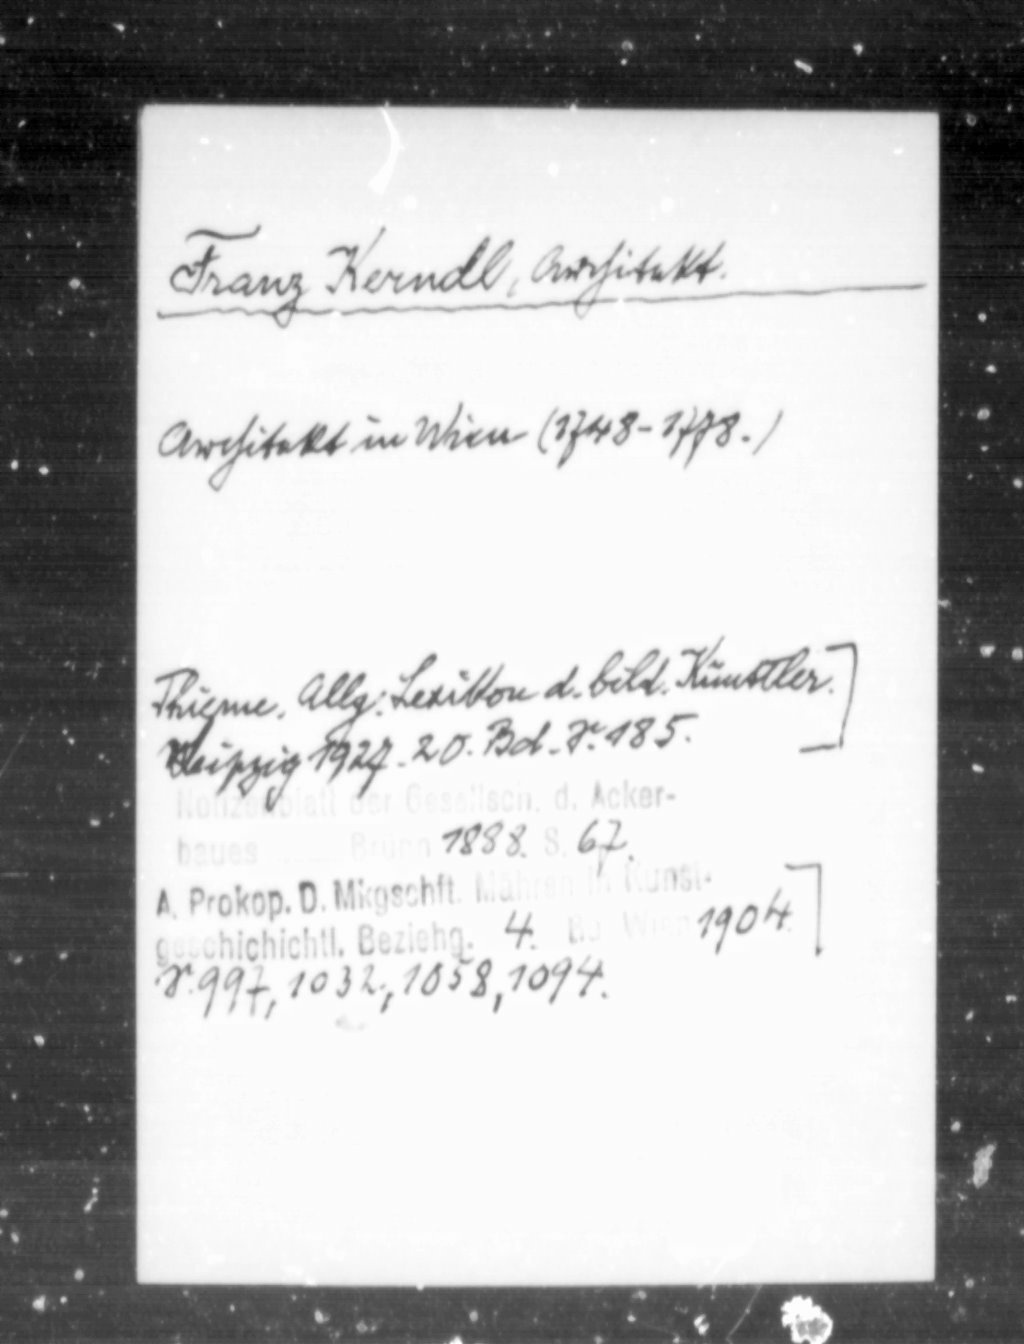 Franz Kerndl, Architekt.
Architekt in Wien (1748-1778.)
Thieme. Allg. Lexikon d. bild. Künstler.
Leipzig 1927. 20. Bd. S. 185.
Notizenblatt der Gesellsch. d. Acker-
baues Brünn 1888. S. 67.
A. Prokop. D. Mkgschft. Mähren in Kunst-
geschichichtl. Beziehg. 4. Bd Wien 1904.
S. 997, 1032, 1058, 1094.